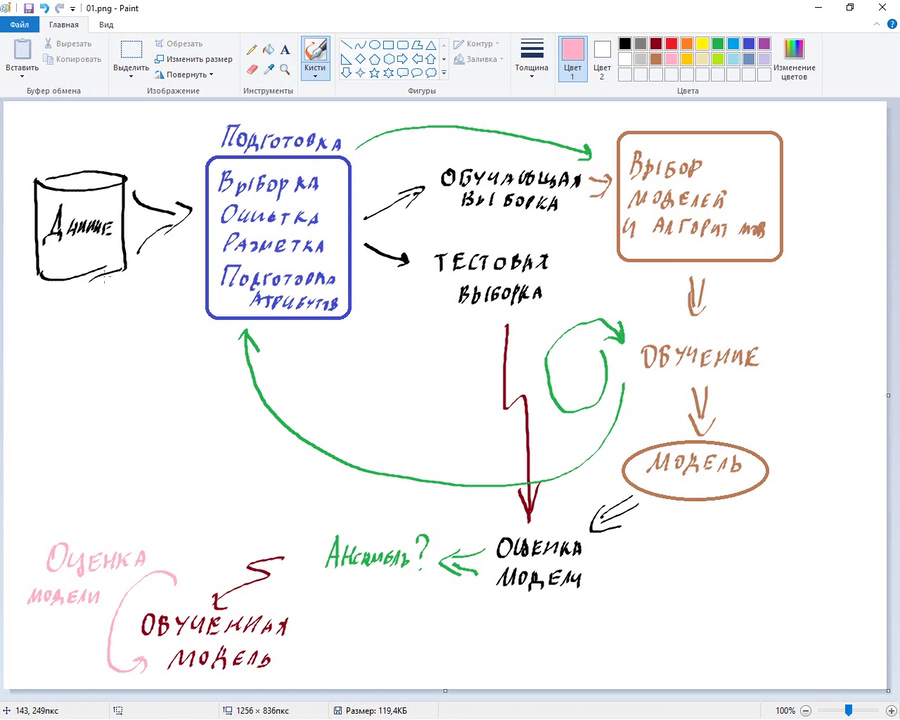 01.png - Paint
Файл
Главная
Вид
Вставить
Вырезать
Копировать
Буфер обмена
Выделить
Обрезать
Изменить размер
Повернуть
Изображение
Инструменты
Кисти
Контур
Заливка
Фигуры
Толщина
Цвет
1
Цвет
2
Изменение
цветов
Цвета
Подготовка
Данные
Выборка
Очистка
Разметка
Подготовка
атрибутов
ОБУЧАЮЩАЯ
ВЫБОРКА
ТЕСТОВАЯ
ВЫБОРКА
Выбор
моделей
и алгоритмов
ОБУЧЕНИЕ
МОДЕЛЬ
ОЦЕНКА
МОДЕЛИ
Ансамбль?
Оценка
модели
ОБУЧЕННАЯ
МОДЕЛЬ
143, 249пкс
1256 × 836пкс
Размер: 119,4КБ
100%